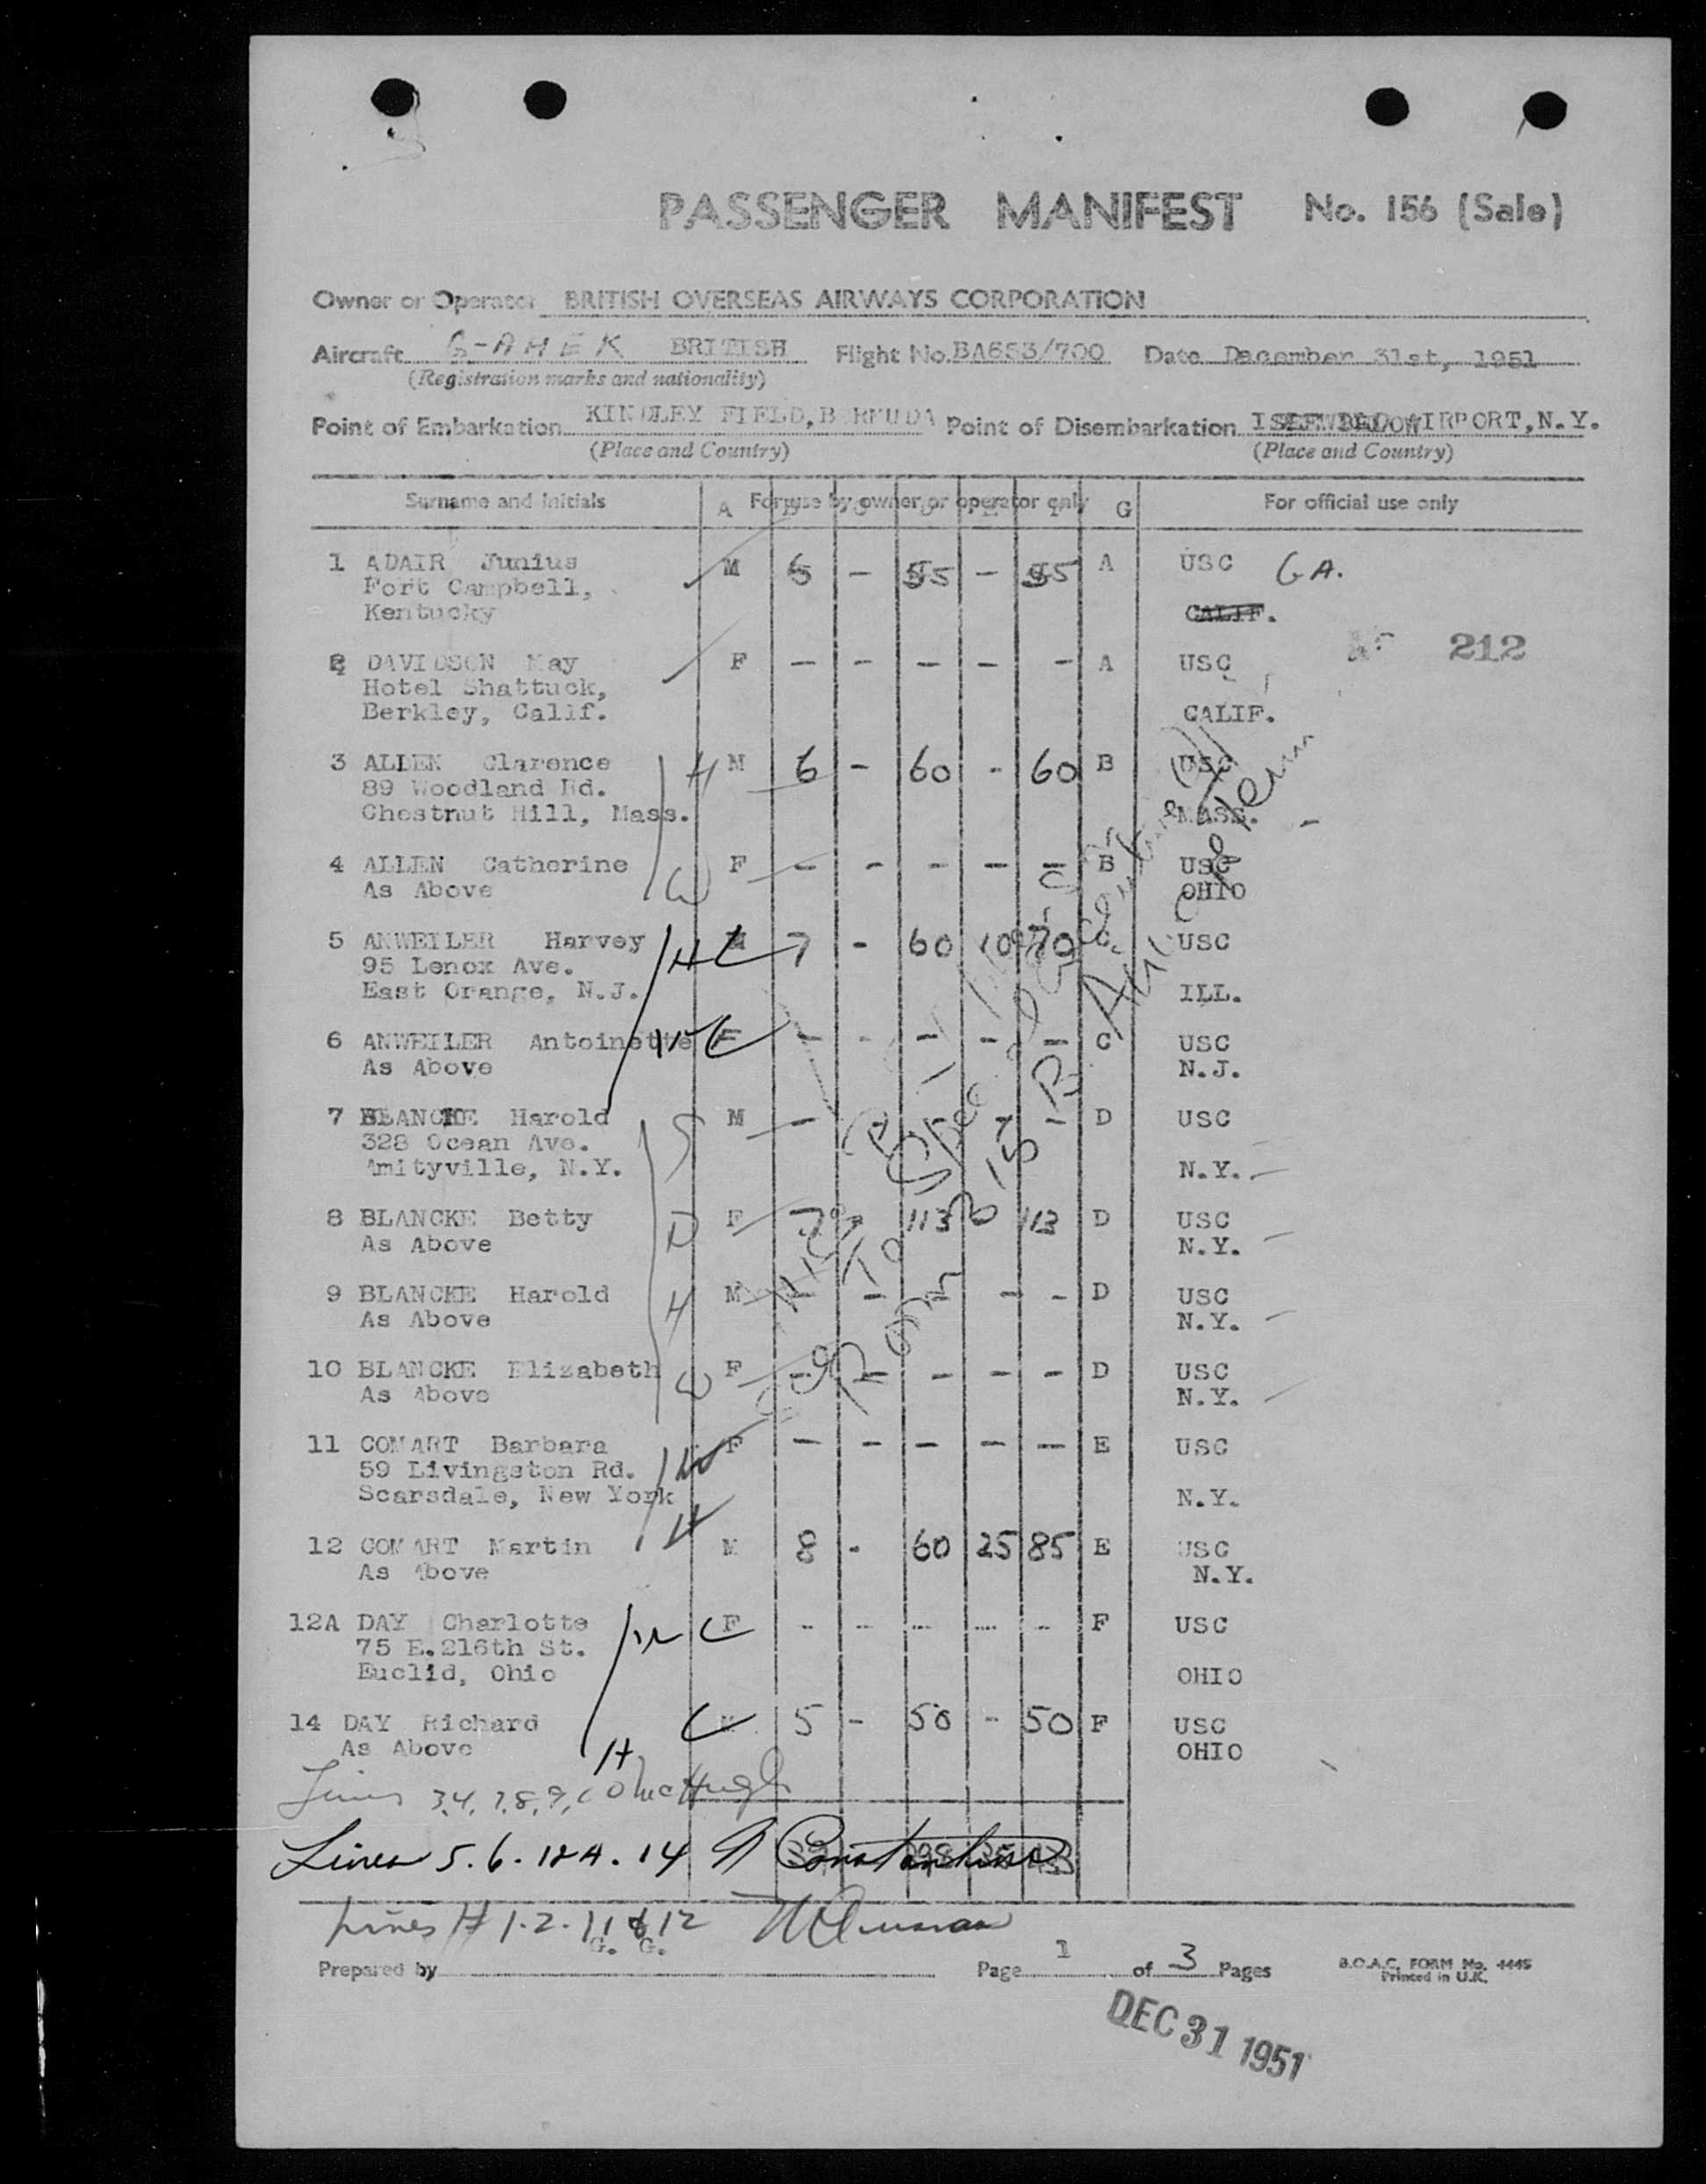 PASSENGER MANIFEST No. 156 (Sale)
Owner or Operator BRITISH OVERSEAS AIRWAYS CORPORATION
Aircraft G-AHEK BRITISH Flight No. BA653/700 Date December 31st, 1951
(Registration marks and nationality)
Point of Embarkation KINDLEY FIELD, BERMUDA Point of Disembarkation AIRPORT, N.Y.
(Place and Country) (Place and Country)
Surname and Initials A For use by owner or operator only G For official use only
1 ADAIR Junius M 6 - 55 - 55 A USC GA.
Fort Campbell,
Kentucky CALIF.
212
2 DAVIDSON May F - - - - - A USC
Hotel Shattuck,
Berkley, Calif. CALIF.
3 ALLEN Clarence H M 6 - 60 - 60 B USC
89 Woodland Rd.
Chestnut Hill, Mass. MASS.
4 ALLEN Catherine W F - - - - - B USC
As Above OHIO
5 ANWEILER Harvey H M 7 - 60 10 70 C USC
95 Lenox Ave.
East Orange, N.J. ILL.
6 ANWEILER Antoinette W F - - - - - C USC
As Above N.J.
7 BLANCKE Harold S M - - - - - D USC
328 Ocean Ave.
Amityville, N.Y. N.Y.
8 BLANCKE Betty D F 7 - 113 - 113 D USC
As Above N.Y.
9 BLANCKE Harold H M - - - - - D USC
As Above N.Y.
10 BLANCKE Elizabeth W F - - - - - D USC
As Above N.Y.
11 COMART Barbara W F - - - - - E USC
59 Livingston Rd.
Scarsdale, New York N.Y.
12 COMART Martin H M 8 - 60 25 85 E USC
As Above N.Y.
12A DAY Charlotte W F - - - - - F USC
75 E.216th St.
Euclid, Ohio OHIO
14 DAY Richard M 5 - 50 - 50 F USC
As Above H OHIO
Lines 3,4,7,8,9,10 McHugh
Lines 5.6.12A.14 Constantine
Lines # 1-2-11&12
G. G.
Prepared by Page 1 of 3 Pages B.O.A.C. FORM No. 4445
Printed in U.K.
DEC 31 1951